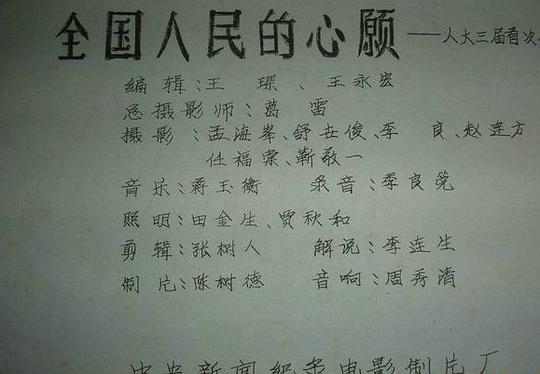 全国人民的心愿——人大三届首次
编辑:王琛、王永宏
总摄影师:葛雷
摄影:孟海峯、舒世俊、李良、赵连方
任福棠、靳敬一
音乐:蒋玉衡 录音:李良
照明:田金生、贾秋和
剪辑:张树人 解说:李连生
制片:陈树德 音响:周秀清
中央新闻纪录电影制片厂